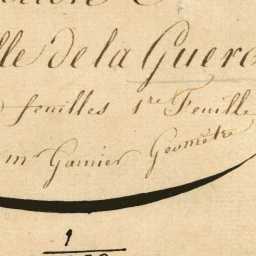 lle de la Guer
feuilles 1re Feuille
mr Garnier Geomètre
1